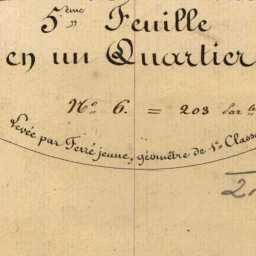 5ème Feuille
en un Quartier
No 6. = 203
Levée par Ferré jeune, géomètre de 1re Classe